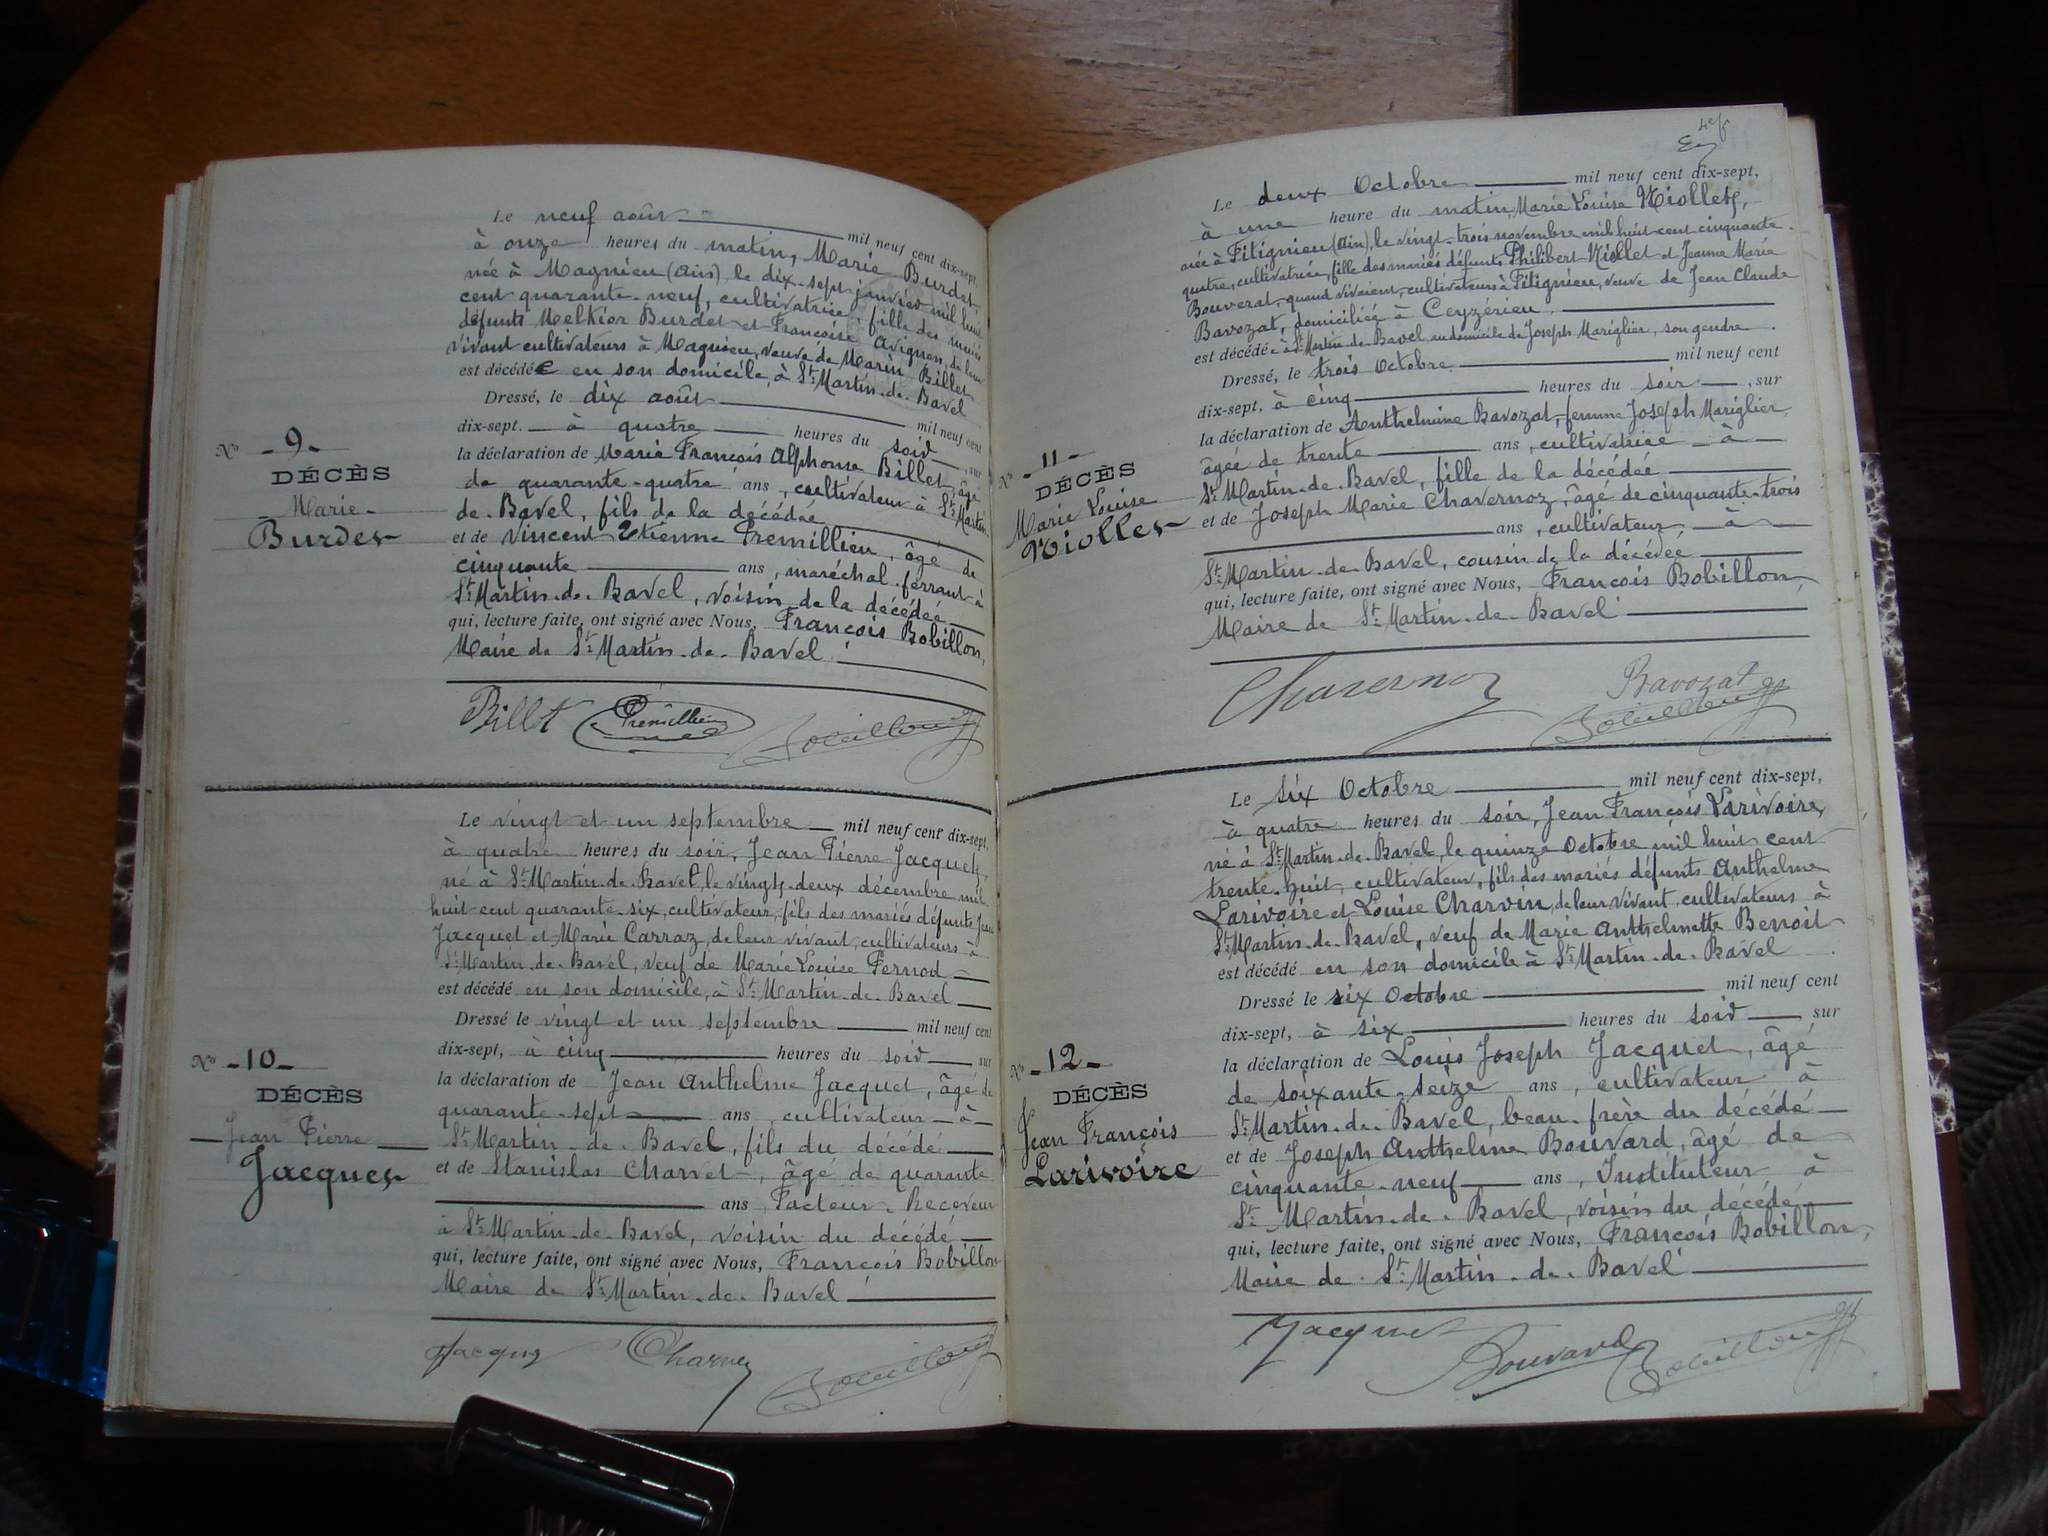 Le neuf août mil neuf cent dix-sept,
à onze heures du matin, Marie Burdet
née à Magnieu (Ain), le dix-sept janvier mil huit
cent quarante-neuf, cultivatrice, fille des mariés
défunts Melkior Burdet et Françoise Avignon, de leur
vivant cultivateurs à Magnieu, veuve de Marin Billet
est décédée en son domicile, à St Martin-de-Bavel
Dressé, le dix août mil neuf cent
dix-sept. à quatre heures du soir, sur
la déclaration de Marie François Alphonse Billet, âgé
de quarante-quatre ans, cultivateur à St Martin
de-Bavel, fils de la décédée
et de Vincent Etienne Premillieu, âgé de
cinquante ans, maréchal-ferrant à
St Martin-de-Bavel, voisin de la décédée
qui, lecture faite, ont signé avec Nous, François Bobillon,
Maire de St Martin-de-Bavel.
No -9-
DÉCÈS
Marie
Burdet
Billet Premillieu Bobillon
Le vingt et un septembre mil neuf cent dix-sept,
à quatre heures du soir, Jean Pierre Jacquet,
né à St Martin-de-Bavel, le vingt-deux décembre mil
huit cent quarante-six, cultivateur, fils des mariés défunts Jean
Jacquet et Marie Carraz, de leur vivant, cultivateurs à
St Martin-de-Bavel, veuf de Marie Louise Pernod
est décédé en son domicile, à St Martin-de-Bavel
Dressé le vingt et un septembre mil neuf cent
dix-sept, à cinq heures du soir, sur
la déclaration de Jean Anthelme Jacquet, âgé de
quarante-sept ans, cultivateur à
St Martin-de-Bavel, fils du décédé
et de Stanislas Charvet, âgé de quarante
ans, Facteur-Receveur
à St Martin-de-Bavel, voisin du décédé
qui, lecture faite, ont signé avec Nous, François Bobillon
Maire de St Martin-de-Bavel.
No -10-
DÉCÈS
Jean Pierre
Jacquet
Jacquet Charvet Bobillon
Le deux Octobre mil neuf cent dix-sept,
à une heure du matin, Marie Louise Niollet,
née à Fitignieu (Ain), le vingt-trois novembre mil huit cent cinquante
quatre, cultivatrice, fille des mariés défunts Philibert Niollet et Jeanne Marie
Bouverat, quand vivaient, cultivateurs à Fitignieu, veuve de Jean Claude
Bavozat, domiciliée à Ceyzérieu
est décédée à St Martin-de-Bavel, au domicile de Joseph Mariglier, son gendre.
Dressé, le trois Octobre mil neuf cent
dix-sept, à cinq heures du soir, sur
la déclaration de Anthelmine Bavozat, femme Joseph Mariglier,
âgée de trente ans, cultivatrice à
St Martin-de-Bavel, fille de la décédée
et de Joseph Marie Chavernoz, âgé de cinquante-trois
ans, cultivateur, à
St Martin-de-Bavel, cousin de la décédée
qui, lecture faite, ont signé avec Nous, François Bobillon,
Maire de St Martin-de-Bavel
No -11-
DÉCÈS
Marie Louise
Niollet
Chavernoz Bavozat
Bobillon
Le six Octobre mil neuf cent dix-sept,
à quatre heures du soir, Jean François Larivoire,
né à St Martin-de-Bavel, le quinze Octobre mil huit cent
trente-huit, cultivateur, fils des mariés défunts Anthelme
Larivoire et Louise Charvin, de leur vivant cultivateurs à
St Martin-de-Bavel, veuf de Marie Anthelmette Benoit
est décédé en son domicile à St Martin-de-Bavel
Dressé le six Octobre mil neuf cent
dix-sept, à six heures du soir sur
la déclaration de Louis Joseph Jacquet, âgé
de soixante-seize ans, cultivateur à
St Martin-de-Bavel, beau-frère du décédé
et de Joseph Anthelme Bouvard, âgé de
cinquante-neuf ans, Instituteur à
St Martin-de-Bavel, voisin du décédé
qui, lecture faite, ont signé avec Nous, François Bobillon,
Maire de St Martin-de-Bavel
No -12-
DÉCÈS
Jean François
Larivoire
Jacquet Bouvard Bobillon